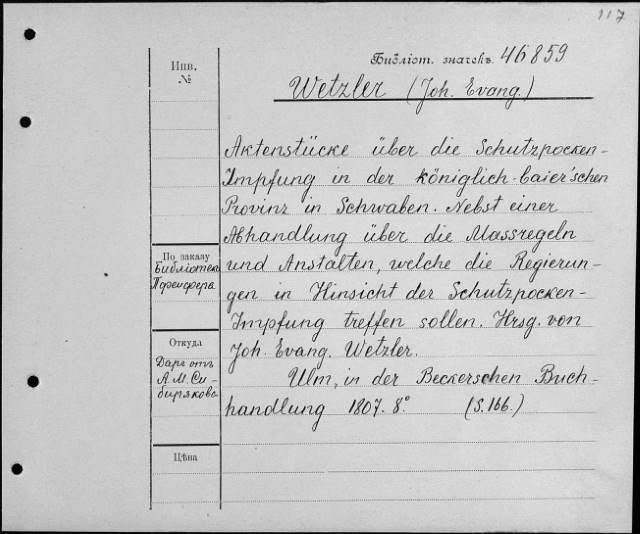 117
Библіот. значекъ 46859
Инв.
№
Wetzler (Joh. Evang.)
Aktenstücke über die Schutzpocken-
Impfung in der königlich-baier'schen
Provinz in Schwaben. Nebst einer
Abhandlung über die Massregeln
und Anstalten, welche die Regierun-
gen in Hinsicht der Schutzpocken-
Impfung treffen sollen. Hrsg. von
Joh. Evang. Wetzler.
Ulm, in der Beckerschen Buch-
handlung 1807. 8° (S. 166.)
По заказу
Библіотека
Пфейфера
Откуда
Даръ отъ
А.М. Си-
бирякова
Цѣна